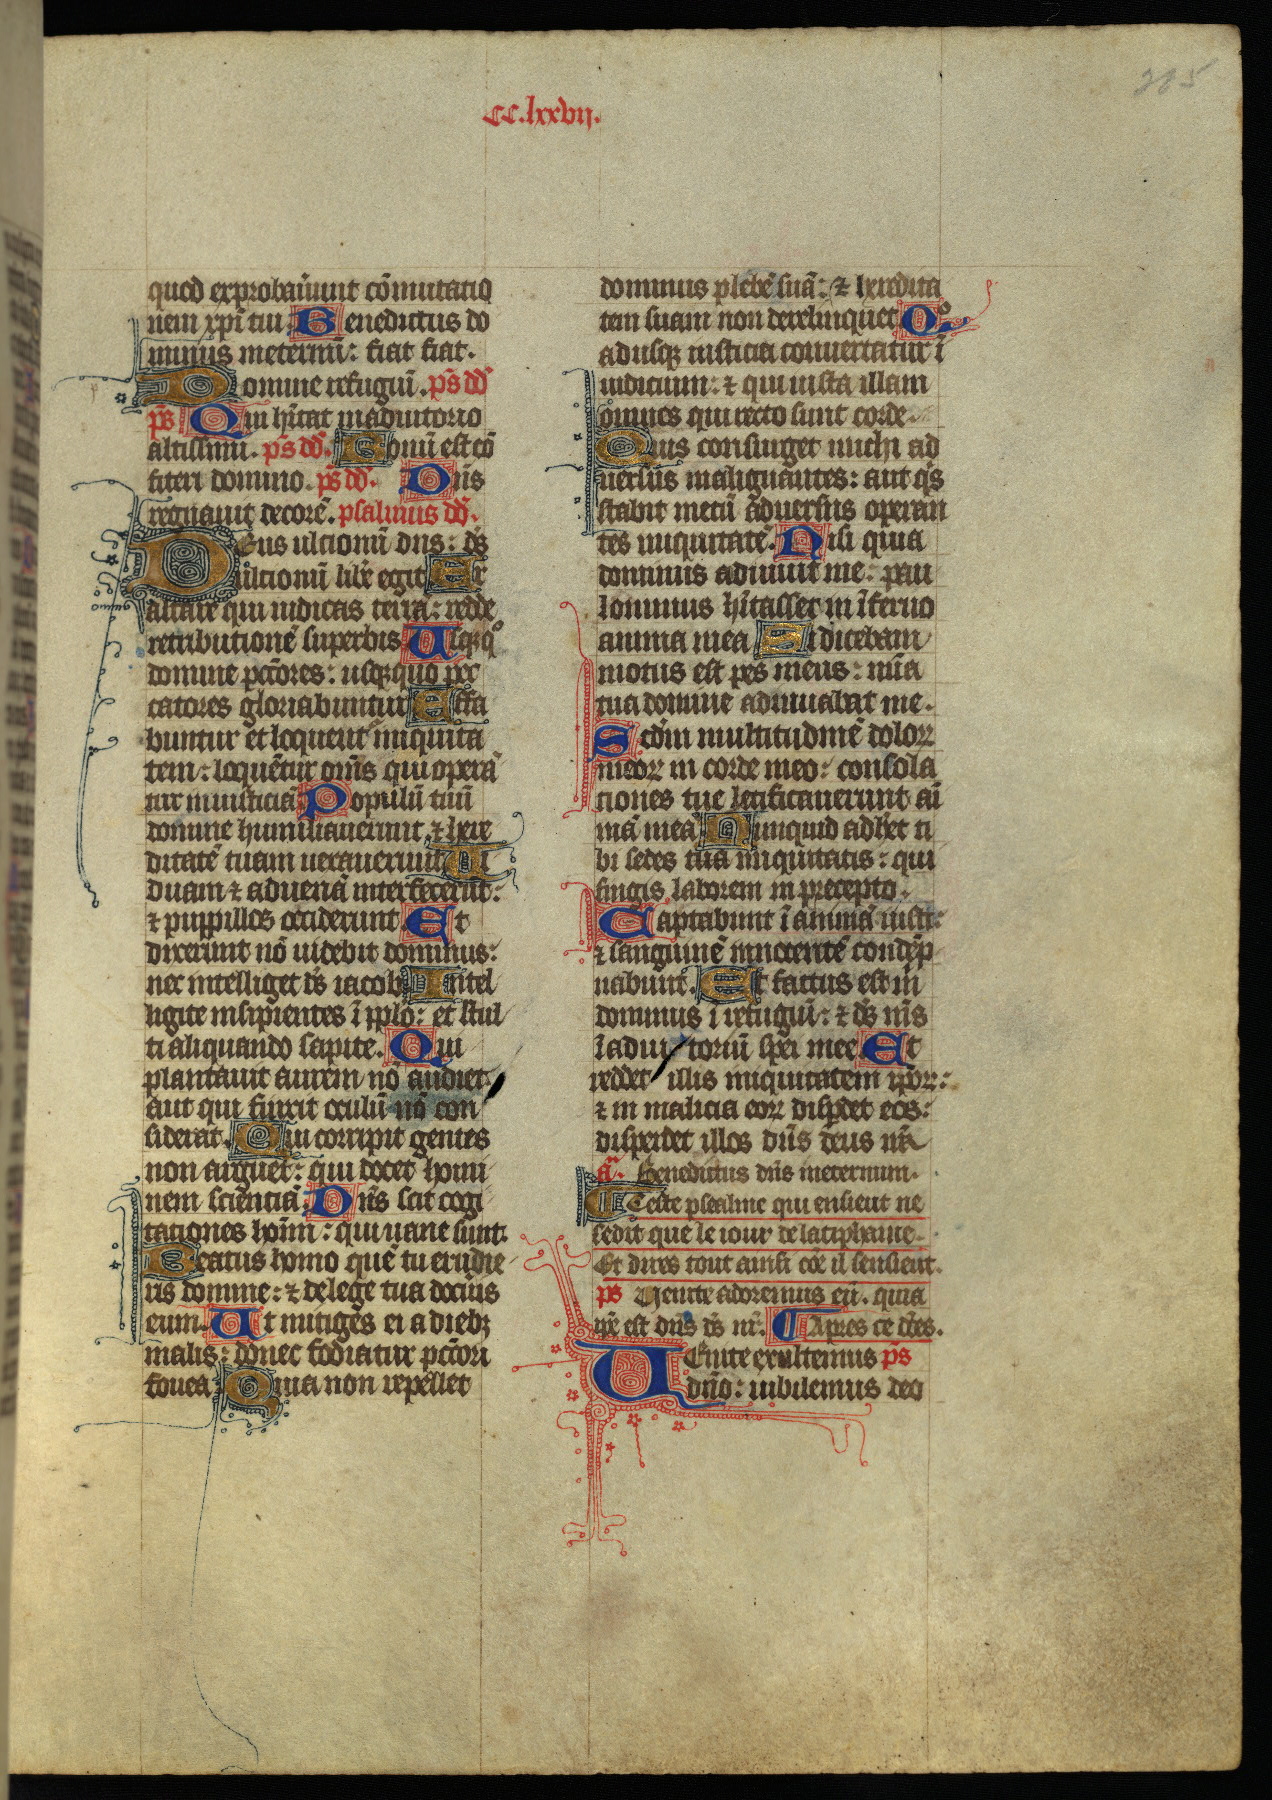 CC.lxxvij.
quod exprobaůunt cōmutatio
nem xp̄i tui. Benedictus do
minus ineternū: fiat fiat.
Domine refugiū. ps̄ dđ
ps̄ Qui hītat inadiutorio
altissimi. ps̄ dđ. Bonū est cō
fiteri domino. ps̄ dđ. Dn̄s
regnauit decorē. psalmus dđ.
Deus ultionū dn̄s: ds̄
ultionū libe egit Ex
altare qui iudicas terrā: redde
retributionē superbis Usqꝫqͦ
domine pc̄cores: usqꝫquo pec
catores gloriabuntur Effa
buntur et loquent̄ iniquita
tem: loquētur om̄s qui operā
tur iniusticiā Populū tuū
domine humiliauerunt: ⁊ here
ditatē tuam uexauerunt Vi
duam ⁊ aduenā interfecerūt:
⁊ puppillos occiderunt. Et
dixerunt nō uidebit dominus:
nec intelliget ds̄ iacob Intel
ligite insipientes ī pplo: et stul
ti aliquando sapite. Qui
plantauit aurem nō audiet
aut qui finxit oculū nō con
siderat. Qui corripit gentes
non arguet: qui docet homi
nem scienciā Dn̄s scit cogi
tationes hoīm: qm̄ uane sunt.
Beatus homo quē tu erudie
ris domine: ⁊ delege tua docūs
eum. Ut mitiges ei a diebꝫ
malis: donec fodiatur pc̄cori
fouea. Quia non repellet
dominus plebē suā: ⁊ heredita
tem suam non derelinquet Qͦ
adusqꝫ iusticia conuertatur ī
iudicium: ⁊ qui iuxta illam
omnes qui recto sunt corde
Quis consurget michi ad
uersus malignantes: aut q̇s
stabit mecū aduersus operan
tes iniquitatē. Nisi quia
dominus adiuuit me: pau
lominus hītasset in īferno
anima mea Si dicebam
motus est pes meus: mīa
tua domine adiuuabat me.
Scd̄m multitudinē dolorꝝ
meorꝝ in corde meo: consola
tiones tue letificauerunt aī
mā meā Nunquid adhēt ti
bi sedes tua iniquitatis: qui
fingis laborem in precepto.
Captabunt ī animā iusti:
⁊ sanguinē innocentē condēp
nabunt. Et factus est m̄
dominus ī refugiū: ⁊ ds̄ m̄s
ī adiutoriū spei mee Et
reddet illis iniquitatem ip̄orꝝ:
⁊ in malicia eorꝝ disp̄det eos:
disperdet illos dn̄s deus nr̄
ā. Benedictus dn̄s ineternum.
Ceste psealme qui ensieut ne
sedit que le iour de latiphaine.
Et dires tout ainsi cōe il sensieut.
ps Uenite adoremus eū. quia
ip̄e est dn̄s ds̄ nr̄. Apres ce dites.
Uenite exultemus ps̄
dn̄o: iubilemus deo